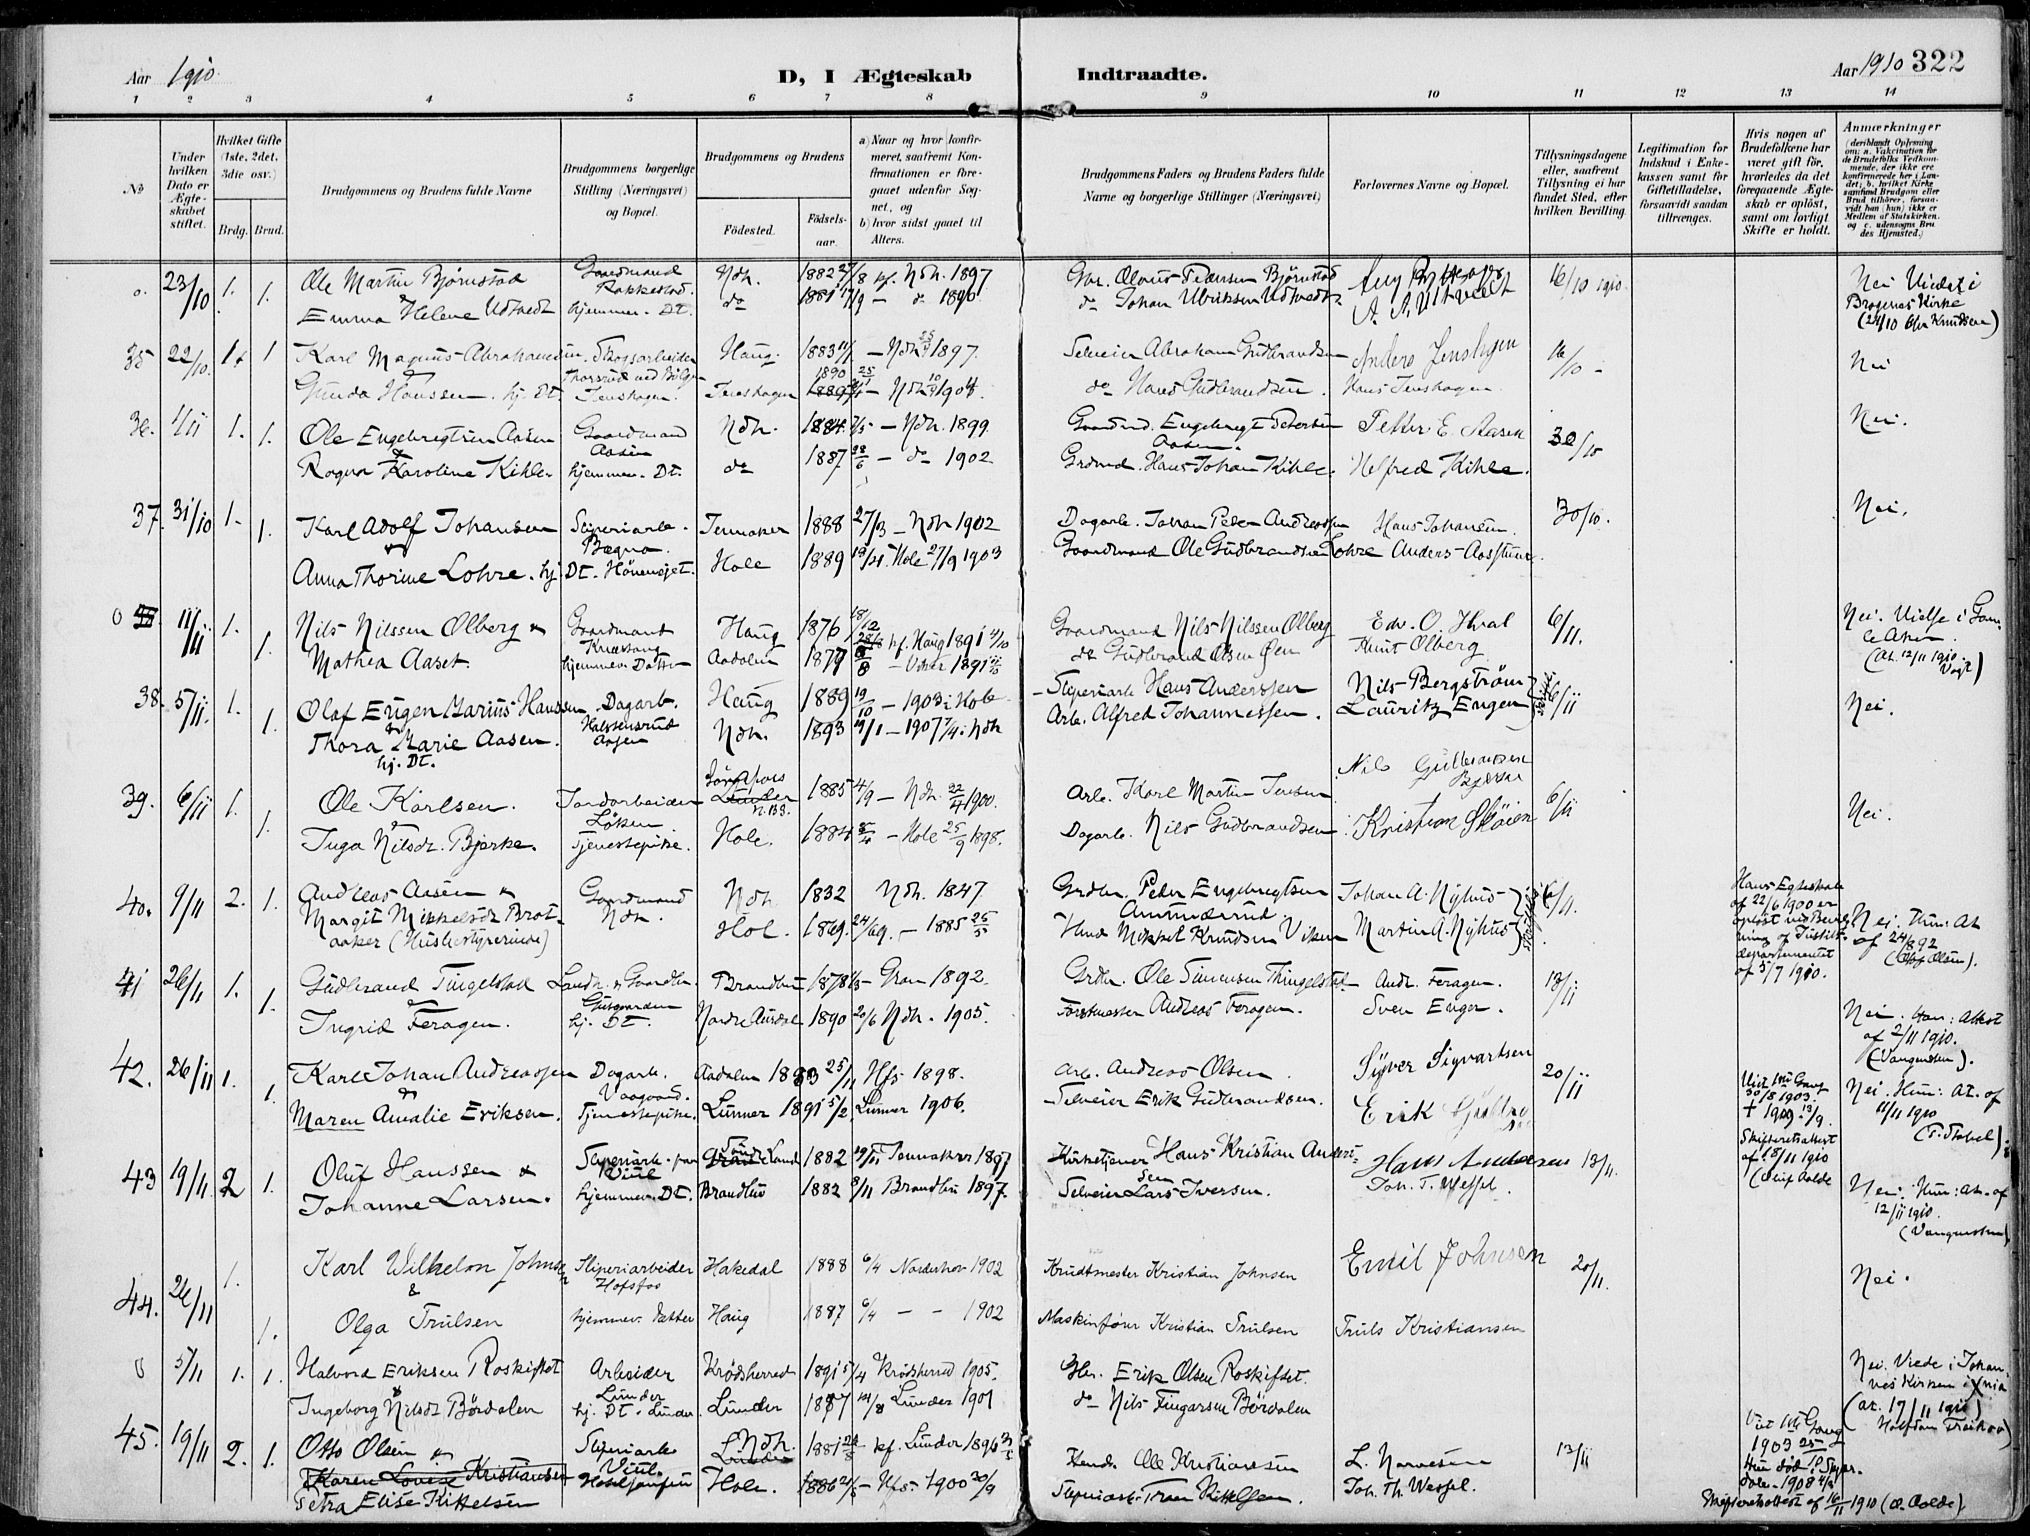 Aar 1910.
D, I Ægteskab Indtraadte.
Aar 1910 322
1 2 3 4 5 6 7 8 9 10 11 12 13 14
No
Under hvilken Dato er Ægteskabet stiftet.
Hvilket Gifte (1ste, 2det, 3die osv.)
Brdg. Brud.
Brudgommens og Brudens fulde Navne
Brudgommens borgerlige Stilling (Næringsvei) og Bopæl.
Brudgommens og Brudens
Födested.
Födselsaar.
a) Naar og hvor konfirmeret, saafremt Konfirmationen er foregaaet udenfor Sognet, og
b) hvor sidst gaaet til Alters.
Brudgommens Faders og Brudens Faders fulde Navne og borgerlige Stillinger (Næringsvei)
Forlovernes Navne og Bopæl.
Tillysningsdagene eller, saafremt Tillysning ei har fundet Sted, efter hvilken Bevilling.
Legitimation for Indskud i Enkekassen samt for Giftetilladelse, forsaavidt saadan tiltrænges.
Hvis nogen af Brudefolkene har været gift før, hvorledes da det foregaaende Ægteskab er oplöst, samt om lovligt Skifte er holdt.
Anmærkninger (deriblandt Oplysning om: a. Vakcination for de Brudefolks Vedkommende, der ikke ere konfirmerede her i Landet; b. hvilket Kirkesamfund Brudgom eller Brud tilhörer, forsaavidt han (hun) ikke er Medlem af Statskirken, og c. udensogns Brudes Hjemsted.)
o. 23/10 1. 1. Ole Martin Bjørnstad Gaardmand Rakkestad. Ndh. 1882 27/8 kf. Ndh. 1897 Gbr. Olaus Pedersen Bjørnstad 16/10 1910. Nei Viedes i
& Emma Helene Udtvedt hjemmev. Dt. do 1881 17/9 – do 1896. do Johan Ulriksen Udtvedt A. A. Udtvedt Bragenes Kirke
(24/10 Knudsen)
35 22/10. 1. 1 Karl Magnus Abrahamsen. Skogsarbeider Haug. 1883 – Ndh 1897. Selveier Abraham Gudbrandsen Anders Jenshagen 16/10 – Nei
& Gunda Hanssen. hj. Dt Jenshagen. Jenshagen 1890 – Ndh 1904. do Hans Gudbrandsen. Hans Jenshagen.
36. 1/11 1. 1. Ole Engebregtsen Aasen Gaardmand Aasen Ndh. 1884. 7/5 – Ndh. 1899 Gaardmd. Engebregt Petersen Aasen. Petter E. Aasen 30/10 Nei.
& Ragna Karoline Kihle. hjemmev. Dt. do 1887 28/6 – do 1902 Grdmd. Hans Johan Kihle. Helfred Kihle.
37. 31/10 1. 1. Karl Adolf Johansen Sliperiarb. Bægna. Jevnaker 1888 27/3 – Ndh 1902 Dagarb. Johan Peder Andreassen Hans Johansen 30/10. Nei.
& Anna Thorine Lohre. hj. Dt. Hönensjet. Hole 1889 19/4. Hole 27/9 1903 Gaardmand Ole Gudbrandsen Lohre Anders Aasstuen.
o 11/11 1. 1. Nils Nilssen Olberg & Gaardmand Haug 1876 18/12 kf. Haug 1891 4/10 Gaardmand Nils Nilssen Olberg Edv. O. Hval 6/11. Nei. Vielse i Gamle Aker.
Mathea Aaset. hjemmev. Datter Aadalen 1877 8/8 – Viker 1891 do Gudbrand Olsen Øen Knut Olberg (At. 12/11 1910. Voigt)
38. 5/11. 1. 1. Olaf Eugen Marius Hanssen. Dagarb. Halstensrud Haug 1889 19/10 – 1903 i Hole – Sliperiarb Hans Anderssen Nils Bergström 6/11 Nei.
& Thora Marie Aasen. hj. Dt. Aasen Ndh. 1893 19/1 – 1907 7/4 i Ndh Arb. Alfred Johannessen. Lauritz Engen
39. 6/11 1. 1. Ole Karlsen. Jordarbeider Løken Lunder N. 133. 1885 4/9 – Ndh. 22/4 1900. Arb. Karl Martin Jensen Nils Gulbrandsen Bjerke 6/11 Nei.
& Inga Nilsdr. Bjerke. Tjenestepike. Hole. 1884 5/4 – Hole 25/9 1898. Dagarb. Nils Gudbrandsen. Kristian Sköien
40. 9/11 2. 1. Andreas Aasen & Gaardmand Ndh. Ndh 1832 Ndh. 1847 Grdbr. Peder Engebregtsen Amundsrud Johan A. Nyhus 6/11. Hans Egteskab af 22/6 1900 er opløst ved Bevilgning af Justitsdepartementet af 5/7 1910.
Margit Mikkelsdr. Brotaaker (Husbestyrerinde) Hol. 1869. 24/69. – 1885 25/5 Mikkel Knudsen Viken Martin A. Nyhus Nei. Hun: At af 24/8 92 (Olsen).
41 26/11 1. 1. Gudbrand Tingelstad Landh. & Gaardbr. Brandbu 1878 – Gran 1892. Grdbr. Ole Simensen Thingelstad – Andr. Feragen. 13/11
& Ingrid Feragen. hj. Dt. Nordre Aurdal 1890 20/6 Ndh. 1905. Forstmester Andreas Feragen. Sven Enger. Nei. Han: Attest af 2/11 1910. (Vangensten).
42. 26/11 1. 1. Karl Johan Andreassen Dagarb. Vaagaard. Aadalen 1883 25/11 Hfs 1898. Arb. Andreas Olsen. Syver Sigvartsen 20/11
& Maren Amalie Eriksen. Tjenestepike. Lunner 1891 5/2 Lunner 1906. – Selveier Erik Gudbrandsen. Erik Viet 1ste Gang 30/8 1903. † 1909 13/9. Nei. Hun: At. af 11/11 1910 (T. Stabel).
43 19/11 2 1. Oluf Hanssen & Sliperiarb. Viul Söndre Land 1882 Jevnaker 1897 Kirketjener Hans Kristian Andersen Hans Andersen 13/11. Skifteretsattest af 18/11 1910 (Aalde
Johanne Larsen. hjemmev. Dt. Brandbu 1882 8/11 Brandbu 1897. Selveier Lars Iversen. Joh. T. Wessel. Nei. Hun: At. af 12/11 1910. (Vangensten).
44. 26/11 1. 1. Karl Wilhelm Johnsen Sliperiarbeider Hofsfos Hakedal 1888 6/4 Norderhov 1902 Krudtmester Kristian Johnsen Emil Johnsen 20/11. Nei.
& Olga Trulsen hjemmev. datter Haug 1887 6/4 – – 1902 Maskinfører Kristian Trulsen Truls Kristiansen
o 5/11 1. 1. Halvord Eriksen Roskiftet Arbeider Lunder Krødsherred 1891 5/4 Krødsherred 1905. Gbr. Erik Olsen Roskiftet. Nei. Viede i Johannes Kirken i Xnia
& Ingeborg Nilsdr Bördalen hj. Dt. Lunder Lunder 1887 14/8 Lunder 1901 do Nils Fingarsen Bördalen (at. 17/11 1910)
45. 19/11 2. 1. Otto Olsen & Sliperiarb. Viul Ndh. Lunder 1881 kf. Lunder 1896 Ole Kristiansen L. Narvesen 13/11 Viet 1ste Gang 1903 25/10 Hun død i
Karen Lovise Kristiansen
Petra Elise Kittelsen Hole. 1886 – Hfs. 1900 30/9 Sliperiarb. Kittelsen. Joh. Th. Wessel. 1908
Skifteretsattest af 16/11 1910 (Aalde)